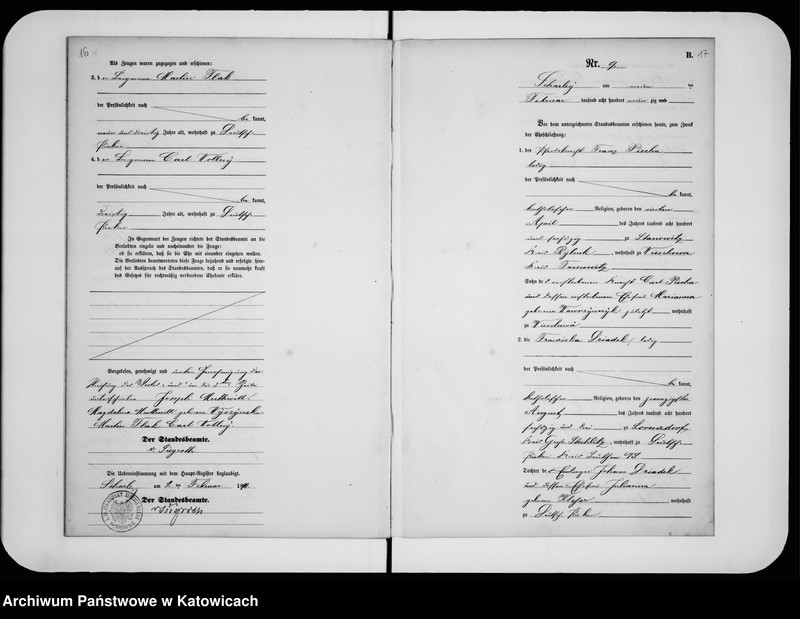 16
Als Zeugen waren zugezogen und erschienen:
3. der Bergmann Martin Flak
der Persönlichkeit nach
be kannt,
neun und dreißig Jahre alt, wohnhaft zu Deutsch-
Piekar
4. der Bergmann Carl
der Persönlichkeit nach
be kannt,
dreißig Jahre alt, wohnhaft zu Deutsch-
Piekar
In Gegenwart der Zeugen richtete der Standesbeamte an die
Verlobten einzeln und nacheinander die Frage:
ob sie erklären, daß sie die Ehe mit einander eingehen wollen.
Die Verlobten beantworteten diese Frage bejahend und erfolgte hier-
auf der Ausspruch des Standesbeamten, daß er sie nunmehr kraft
des Gesetzes für rechtmäßig verbundene Eheleute erkläre.
Vorgelesen, genehmigt und unter Genehmigung der
und in der
unterschrieben Joseph
Magdalena geborene
Martin Flak Carl
Der Standesbeamte.
Die Uebereinstimmung mit dem Haupt-Register beglaubigt.
Scharley am 9 ten Februar 18
Der Standesbeamte.
B. 17
Nr. 9
Scharley am neun ten
Februar tausend acht hundert neun zig und
Vor dem unterzeichneten Standesbeamten erschienen heute, zum Zweck
der Eheschließung:
1. der Pferdeknecht Franz Piecha
ledig
der Persönlichkeit nach
be kannt,
katholischer Religion, geboren den
April des Jahres tausend acht hundert
und sechszig zu Stanowitz
Kreis Rybnik, wohnhaft zu Wieschowa
Kreis Tarnowitz
Sohn des verstorbenen Knecht Carl Piecha
und dessen verstorbenen Ehefrau Marianna
geborene Wawrzynczyk zuletzt wohnhaft
zu Wieschowa
2. die Franciska Dziadek, ledig
der Persönlichkeit nach
be kannt,
katholischer Religion, geboren den
August des Jahres tausend acht hundert
sechszig und drei zu
Kreis Groß Strehlitz, wohnhaft zu Deutsch-
Piekar Kreis Beuthen OS
Tochter des Johann Dziadek
und dessen Ehefrau Julianna
geborene wohnhaft
zu Deutsch Piekar
Archiwum Państwowe w Katowicach